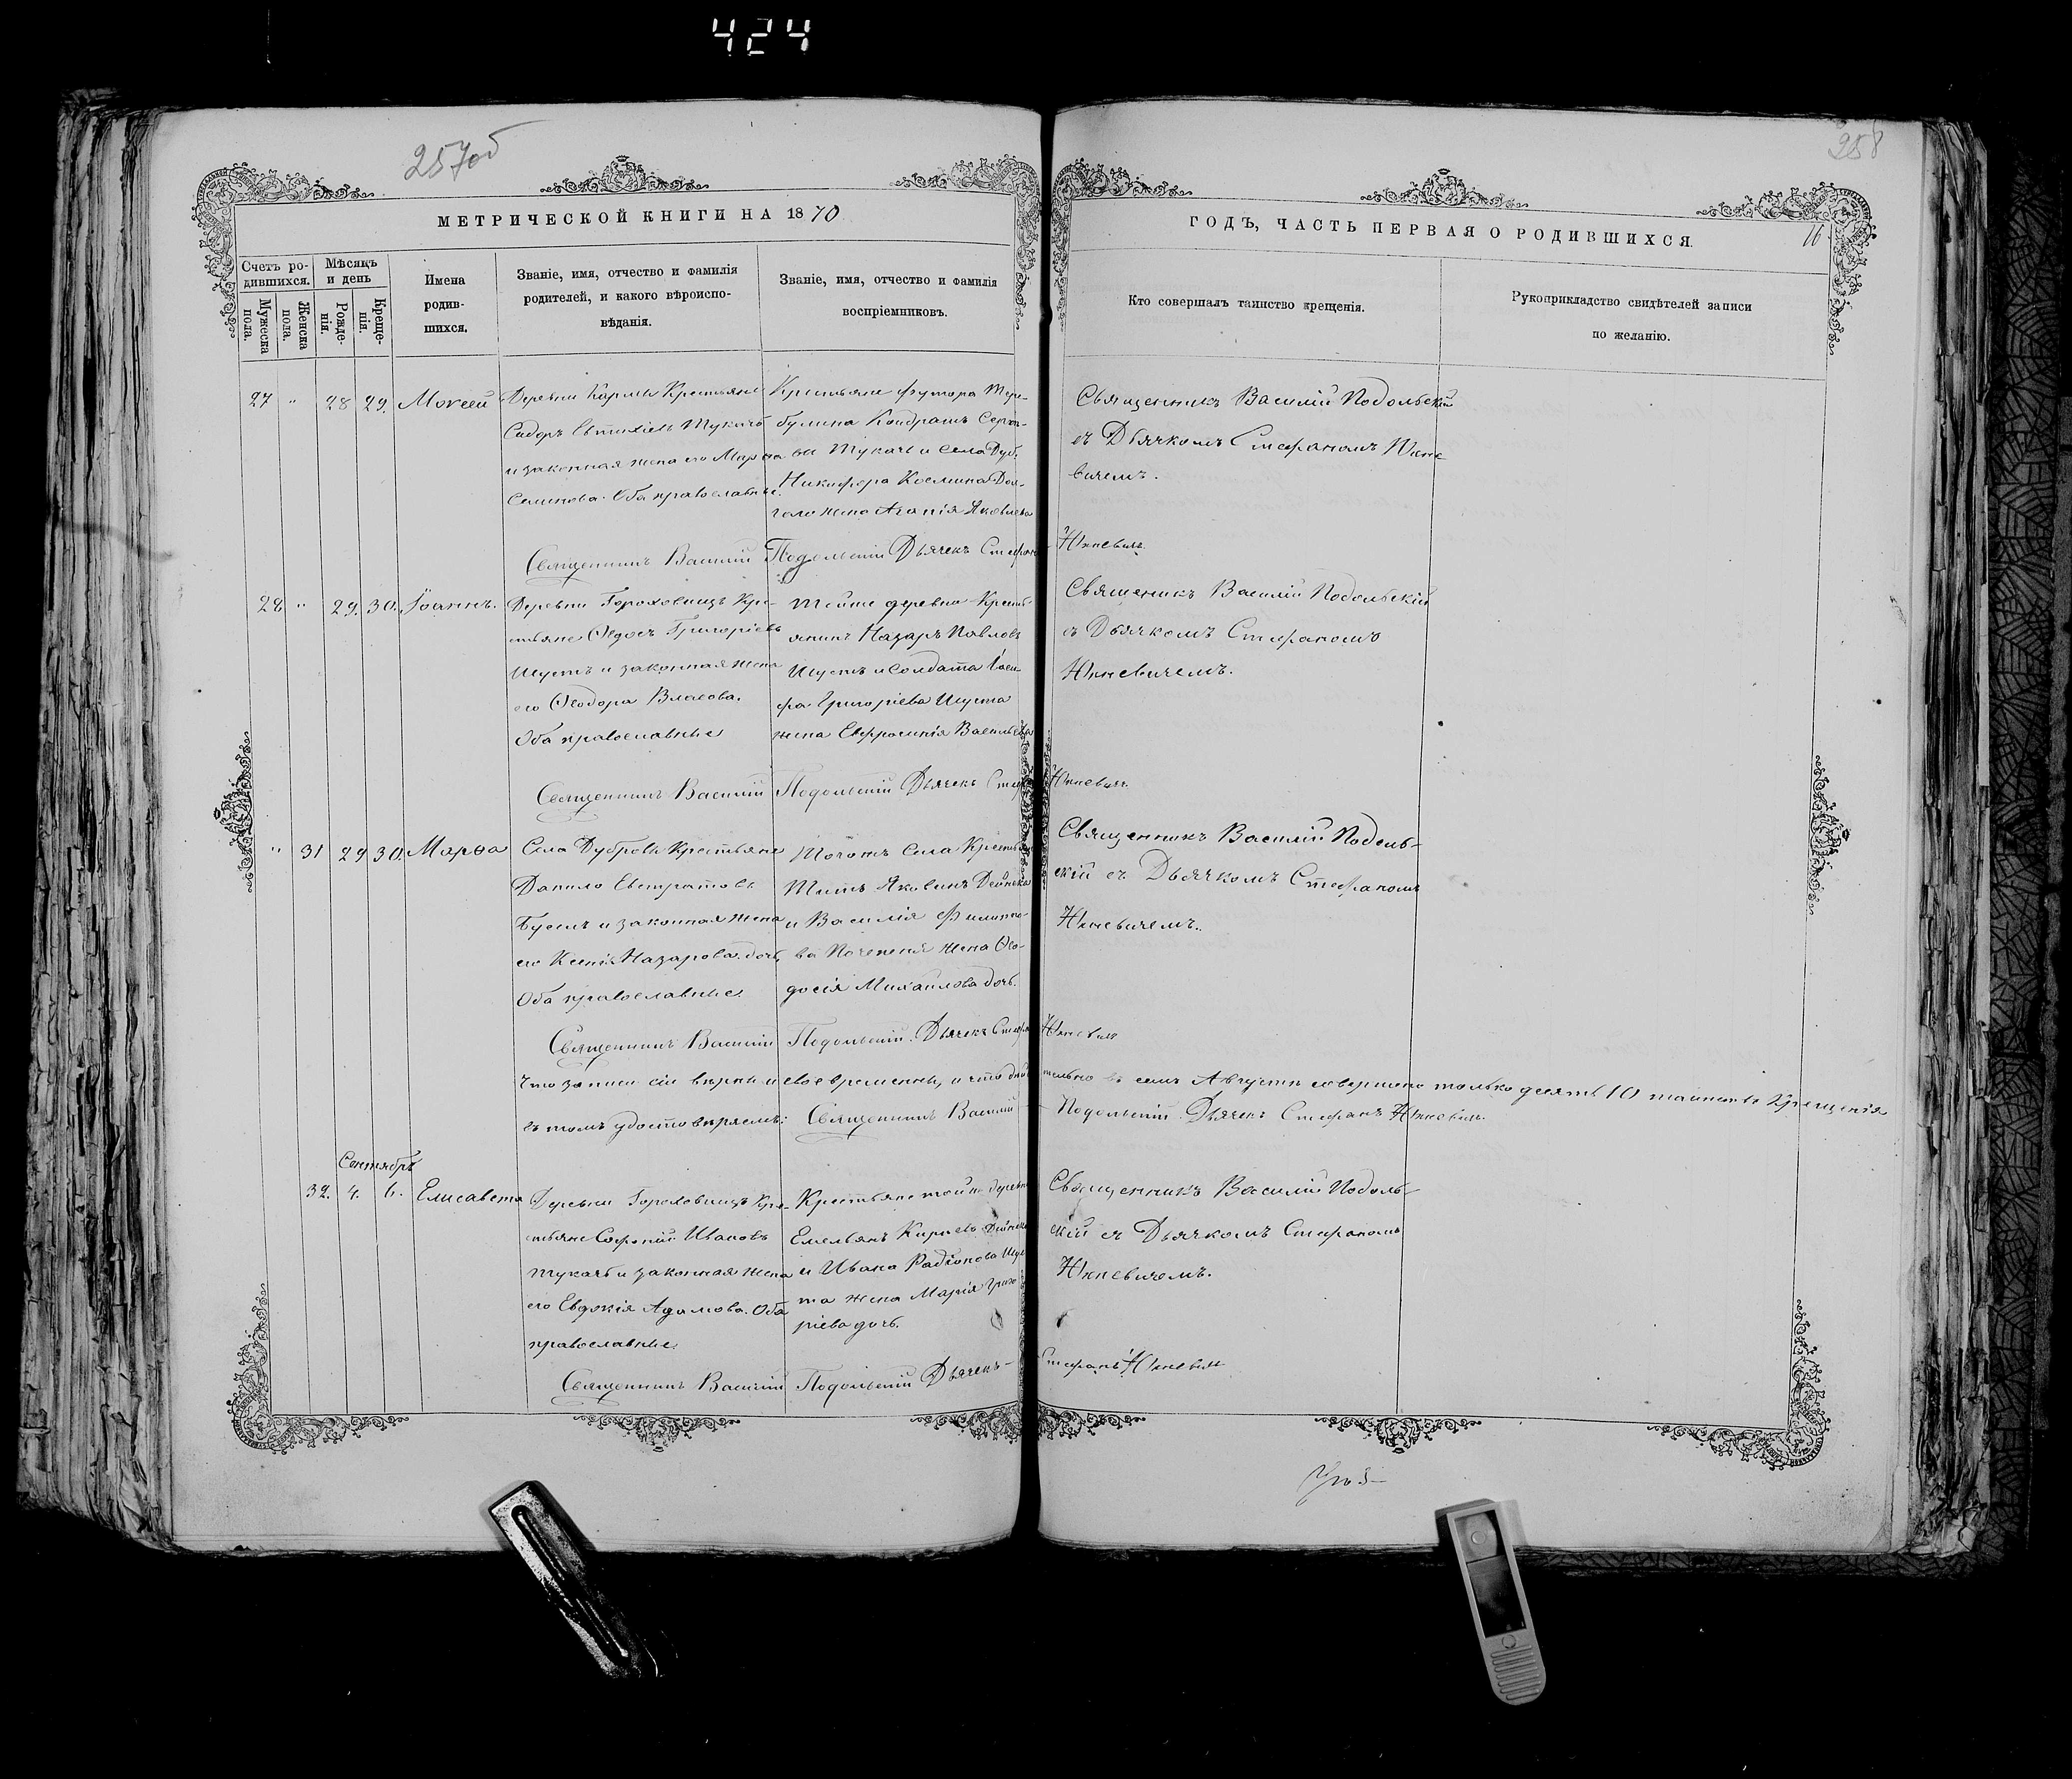 424
257об
258
МЕТРИЧЕСКОЙ КНИГИ НА 1870
ГОДЪ, ЧАСТЬ ПЕРВАЯ О РОДИВШИХСЯ.
Счетъ ро-
дившихся.
Мѣсяцъ
и день
Мужеска
пола.
Женска
пола.
Рожде-
нія.
Креще-
нія.
Имена
родив-
шихся.
Званіе, имя, отчество и фамилія
родителей, и какого вѣроиспо-
вѣданія.
Званіе, имя, отчество и фамилія
воспріемниковъ.
Кто совершалъ таинство крещенія.
Рукоприкладство свидѣтелей записи
по желанію.
27 " 28 29. Моисей
Деревни Крестьяне
Сидоръ Тукачъ
и законная жена его Марѳа
Семинова. Оба православные.
Крестьяне футора
Кондратъ
Тукачъ и села Дуб.
Никифора Космина
жена Агапія Яковлева
Священникъ Василій Подольскій
съ Дьячкомъ Стефаномъ Юхне
вичемъ.
Священникъ Василій Подольскій Дьячекъ Стефанъ Юхневичъ
28 " 29. 30. Іоаннъ.
Деревни Гороховищъ Кре-
стьяне Ѳедосъ Григоріевъ
Шустъ и законная жена
его Ѳеодора Власова.
Оба православные
Тойже деревни Кресть-
янинъ Назаръ Павловъ
Шустъ и солдата Іоси-
фа Григоріева Шуста
жена Евфросинія Васильева
Священникъ Василій Подольскій
съ Дьячкомъ Стефаномъ
Юхневичемъ.
Священникъ Василій Подольскій Дьячекъ Стефанъ Юхневичъ
" 31 29 30. Марѳа
Села Дубровы Крестьяне
Данило Евстратовъ
Буселъ и законная жена
его Ксенія Назарова дочь
Оба православные.
Тогожъ села Крестьяне
Титъ Яковинъ Дейнека
и Василія Филиппо-
ва жена Ѳео-
досія Михаилова дочь.
Священникъ Василій Подоль-
скій съ Дьячкомъ Стефаномъ
Юхневичемъ.
Священникъ Василій Подольскій. Дьячекъ Стефанъ Юхневичъ
Что записи сіи вѣрны и своевременны, и что дѣйстви тельно въ семъ Августѣ совершено только десять 10 таинствъ Крещенія
въ томъ удостовѣряемъ: Священникъ Василій Подольскій. Дьячекъ Стефанъ Юхневичъ.
Сентябрь
32. 4. 6. Елисавета
Деревни Гороховищъ Кре-
стьяне Софоній Ивановъ
Тукачъ и законная жена
его Евдокія Адамова. Оба
православные.
Крестьяне тойже деревни
Емельянъ Дейнека
и Ивана Радіонова Шус
та жена Марія Григо
ріева дочь.
Священникъ Василій Подоль-
скій съ Дьячкомъ Стефаномъ
Юхневичемъ.
Священникъ Василій Подольскій Дьячекъ - Стефанъ Юхневичъ